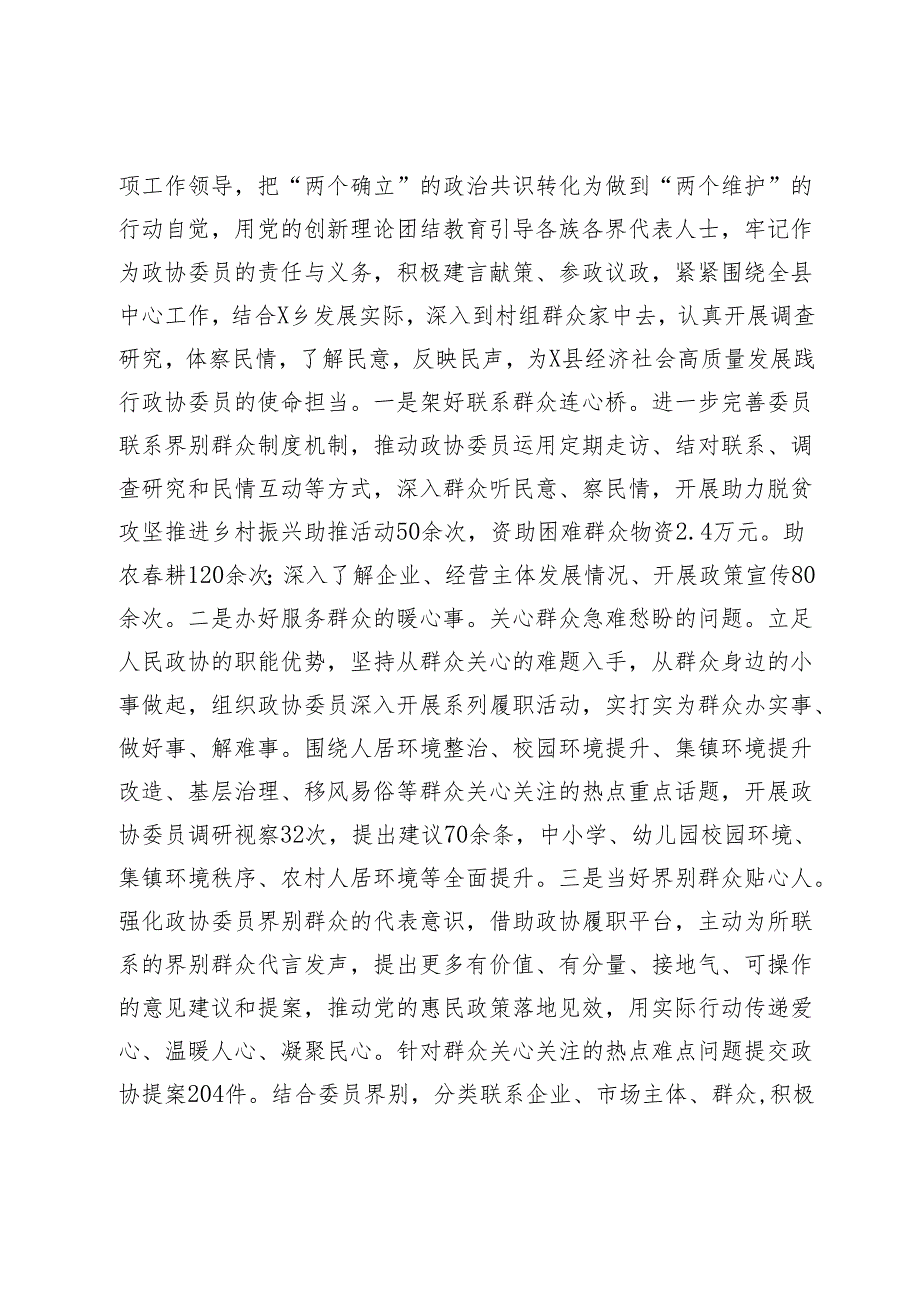 项工作领导，把“两个确立”的政治共识转化为做到“两个维护”的
行动自觉，用党的创新理论团结教育引导各族各界代表人士，牢记作
为政协委员的责任与义务，积极建言献策、参政议政，紧紧围绕全县
中心工作，结合X乡发展实际，深入到村组群众家中去，认真开展调查
研究，体察民情，了解民意，反映民声，为X县经济社会高质量发展践
行政协委员的使命担当。一是架好联系群众连心桥。进一步完善委员
联系界别群众制度机制，推动政协委员运用定期走访、结对联系、调
查研究和民情互动等方式，深入群众听民意、察民情，开展助力脱贫
攻坚推进乡村振兴助推活动50余次，资助困难群众物资2.4万元。助
农春耕120余次；深入了解企业、经营主体发展情况、开展政策宣传80
余次。二是办好服务群众的暖心事。关心群众急难愁盼的问题。立足
人民政协的职能优势，坚持从群众关心的难题入手，从群众身边的小
事做起，组织政协委员深入开展系列履职活动，实打实为群众办实事、
做好事、解难事。围绕人居环境整治、校园环境提升、集镇环境提升
改造、基层治理、移风易俗等群众关心关注的热点重点话题，开展政
协委员调研视察32次，提出建议70余条，中小学、幼儿园校园环境、
集镇环境秩序、农村人居环境等全面提升。三是当好界别群众贴心人。
强化政协委员界别群众的代表意识，借助政协履职平台，主动为所联
系的界别群众代言发声，提出更多有价值、有分量、接地气、可操作
的意见建议和提案，推动党的惠民政策落地见效，用实际行动传递爱
心、温暖人心、凝聚民心。针对群众关心关注的热点难点问题提交政
协提案204件。结合委员界别，分类联系企业、市场主体、群众,积极